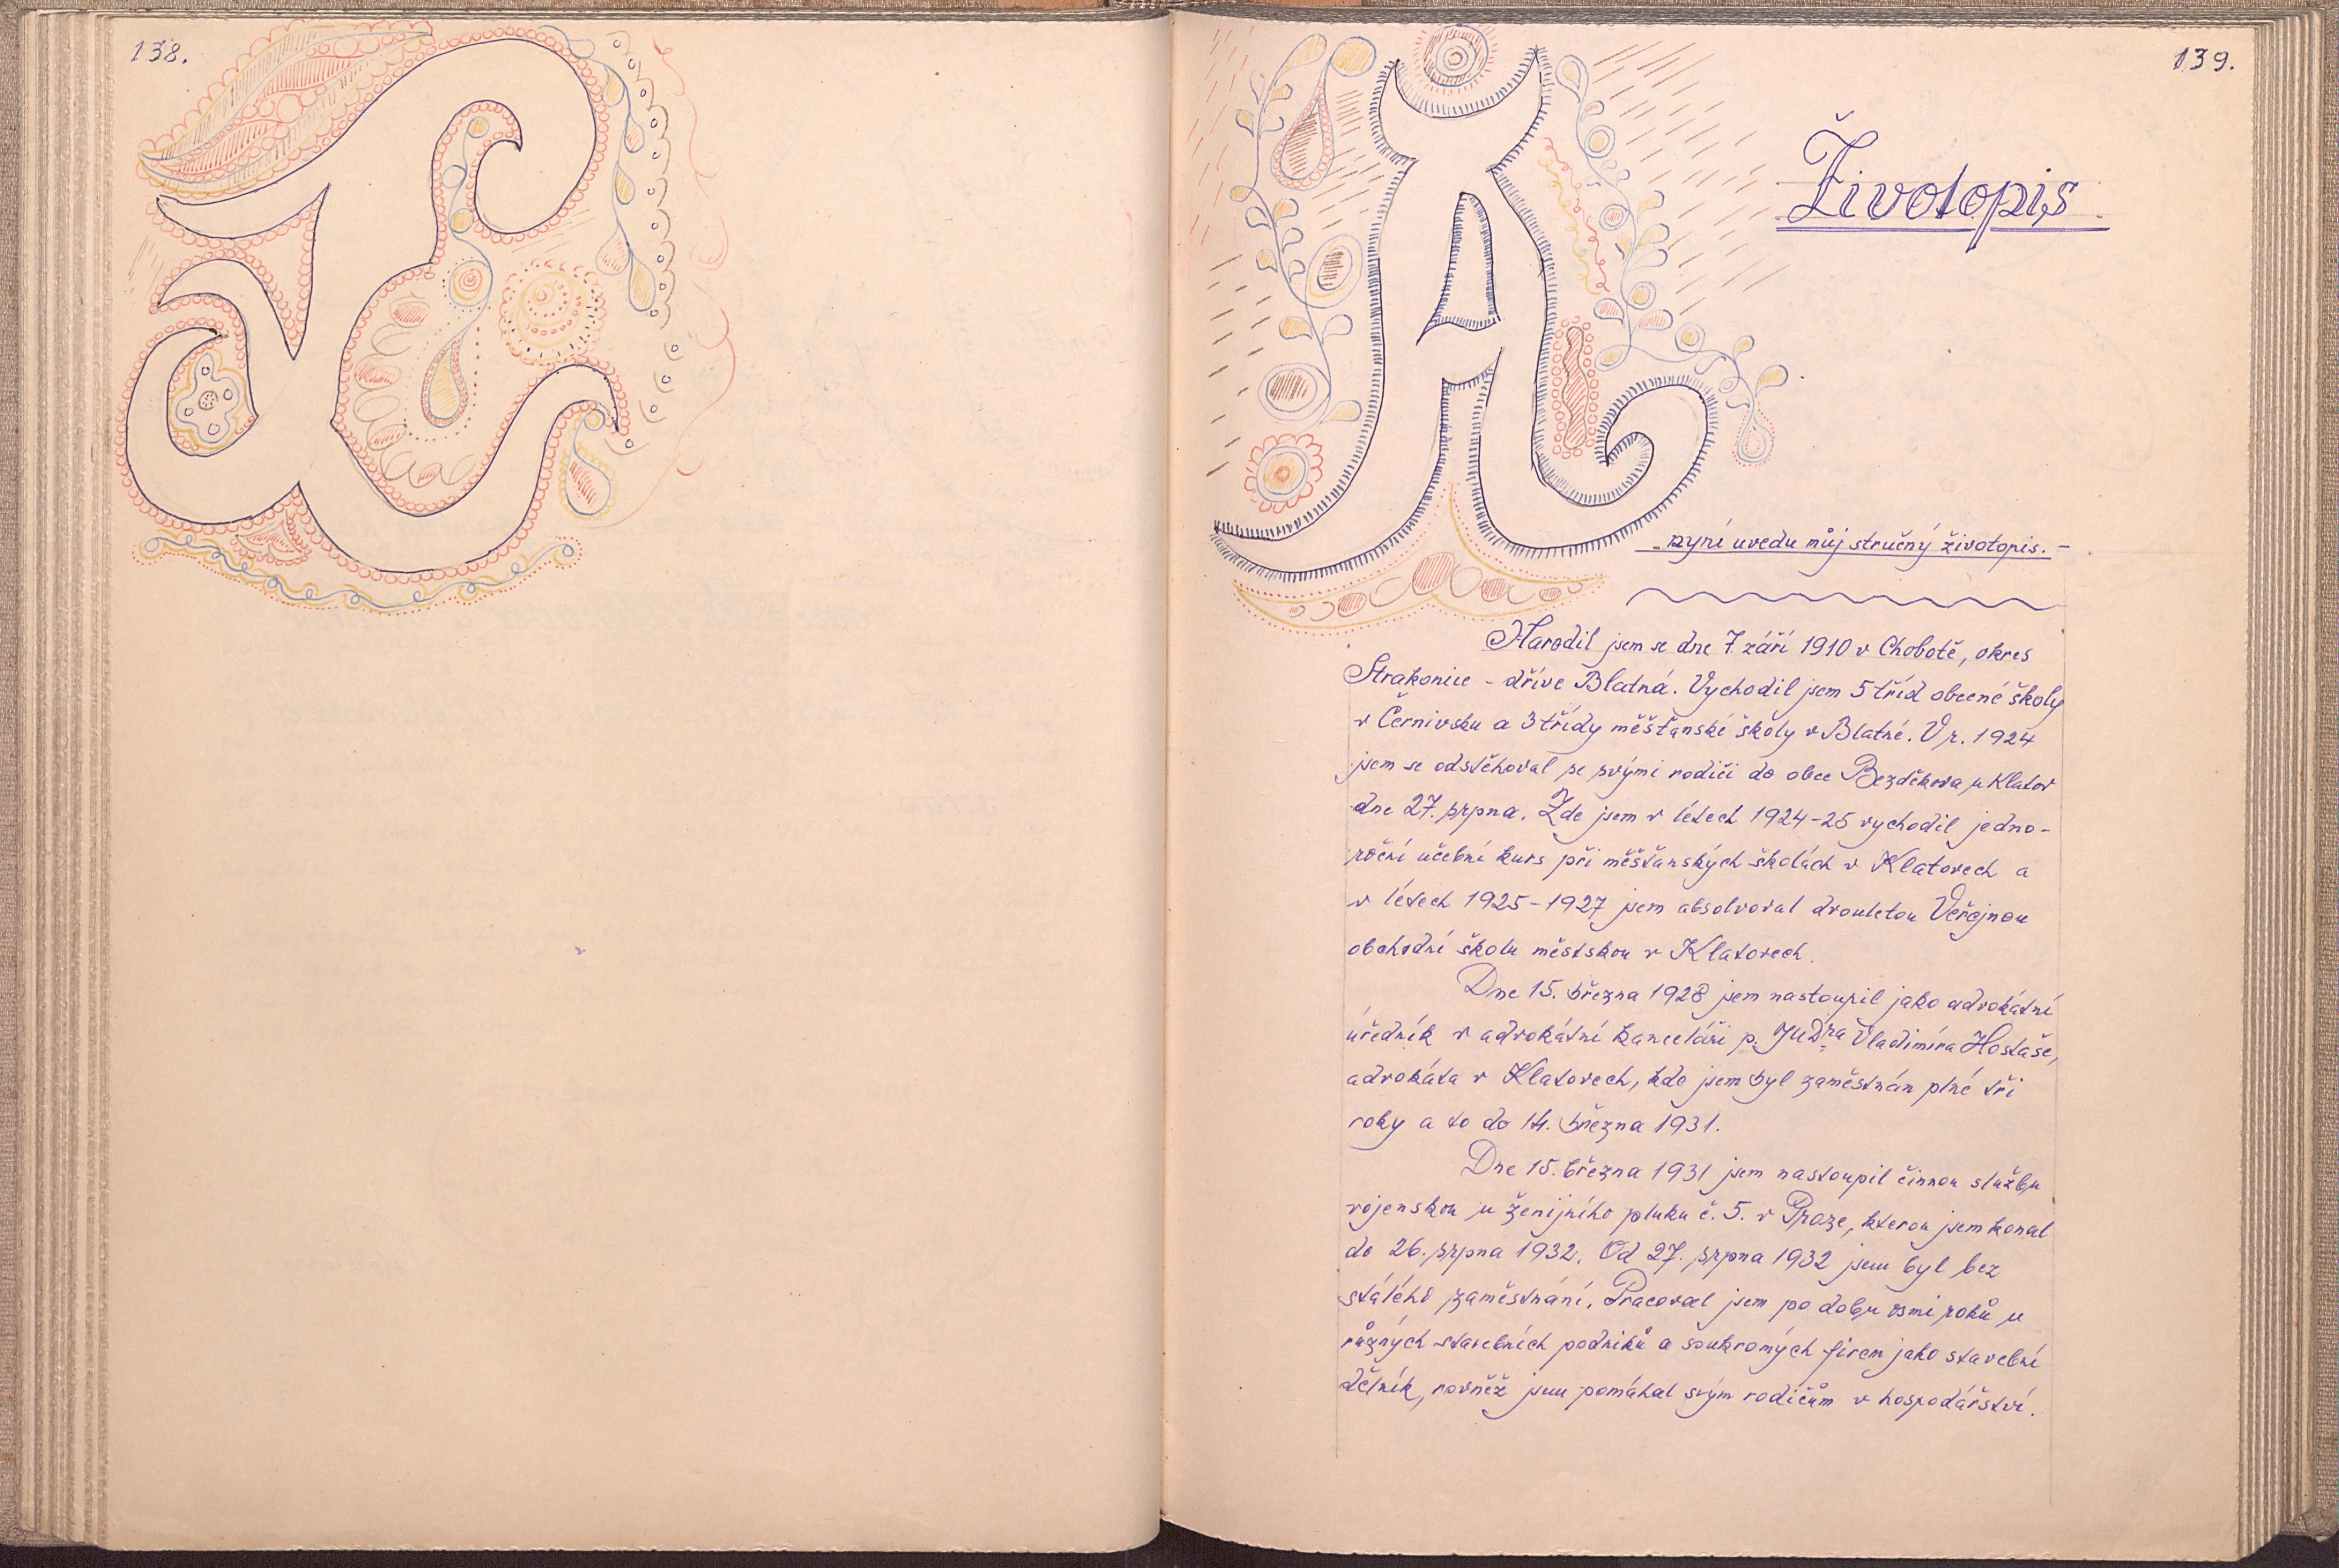 138.
139.
Životopis
A nyní uvedu můj stručný životopis. -
Narodil jsem se dne 7. září 1910 v Chobotě, okres
Strakonice - dříve Blatná. Vychodil jsem 5 tříd obecné školy
v Černivsku a 3 třídy měšťanské školy v Blatné. V r. 1924
jsem se odstěhoval se svými rodiči do obce Bezděkova u Klatov
dne 27. srpna. Zde jsem v létech 1924-25 vychodil jedno-
roční učební kurs při měšťanských školách v Klatovech a
v létech 1925-1927 jsem absolvoval dvouletou Veřejnou
obchodní školu městskou v Klatovech.
Dne 15. března 1928 jsem nastoupil jako advokátní
úředník v advokátní kanceláři p. JUDra Vladimíra Hostaše,
advokáta v Klatovech, kde jsem byl zaměstnán plné tři
roky a to do 14. března 1931.
Dne 15. března 1931 jsem nastoupil činnou službu
vojenskou u ženijního pluku č. 5. v Praze, kterou jsem konal
do 26. srpna 1932. Od 27. srpna 1932 jsem byl bez
stálého zaměstnání. Pracoval jsem po dobu osmi roků u
různých stavebních podniků a soukromých firem jako stavební
dělník, rovněž jsem pomáhal svým rodičům v hospodářství.